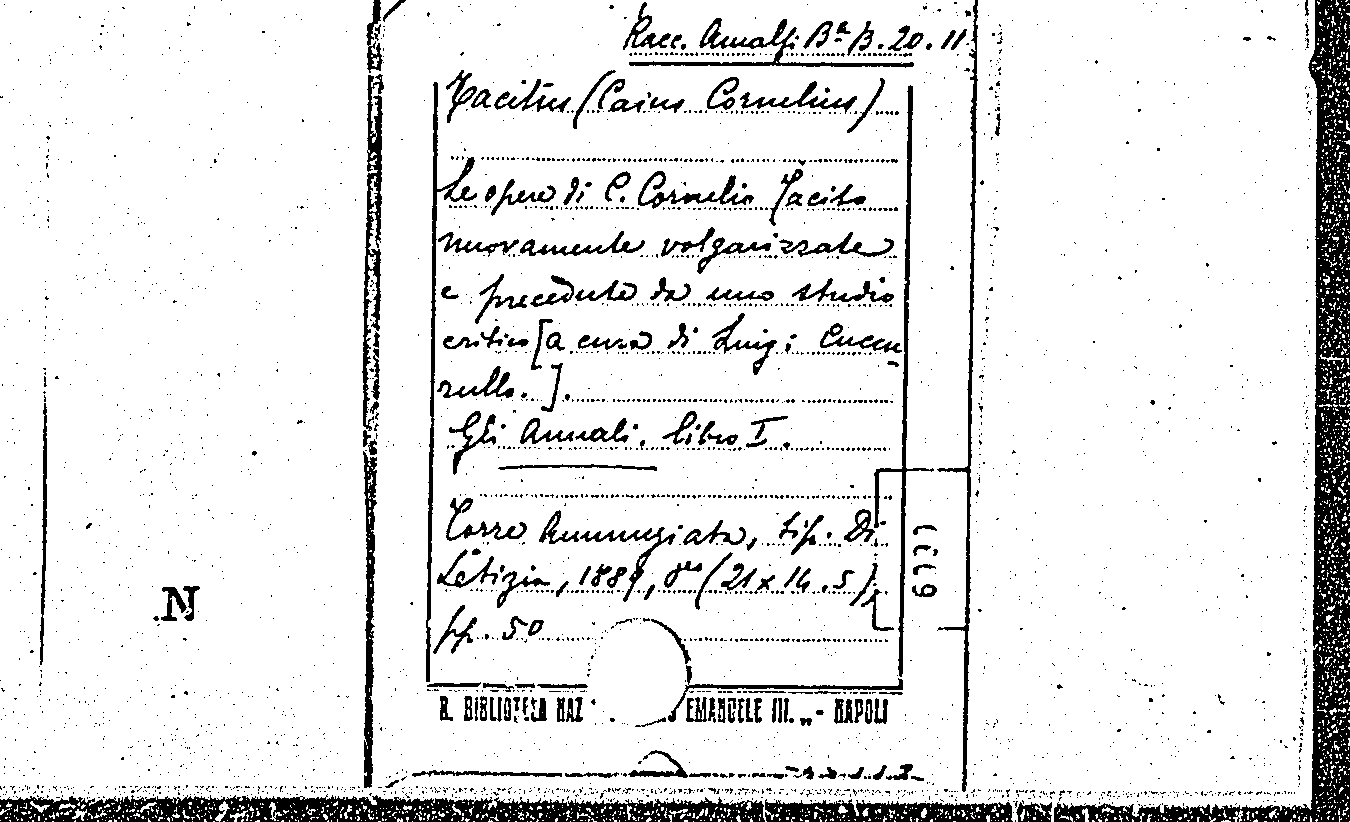 Racc. Amalfi Bª B. 20. 11
Tacitus (Caius Cornelius)
Le opere di C. Cornelio Tacito
nuovamente volgarizzate
e precedute da uno studio
critico [a cura di Luigi Cuccu
rullo.].
Gli Annali. Libro I.
Torre Annunziata, tip. Di
Letizia, 1889, 8º (21 x 14.5),
pp. 50
R. BIBLIOTECA NAZ EMANUELE III. „ - NAPOLI
.N